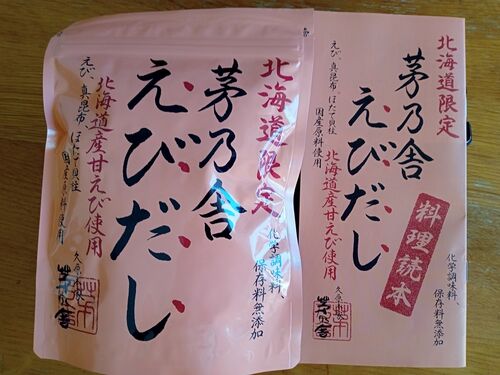 北海道限定
茅乃舎
えびだし
北海道産甘えび使用
えび、真昆布、ほたて貝柱
国産原料使用
化学調味料、
保存料無添加
久原本家
茅乃舎
北海道限定
茅乃舎
えびだし
北海道産甘えび使用
えび、真昆布、ほたて貝柱
国産原料使用
料理読本
化学調味料、
保存料無添加
久原
茅乃舎